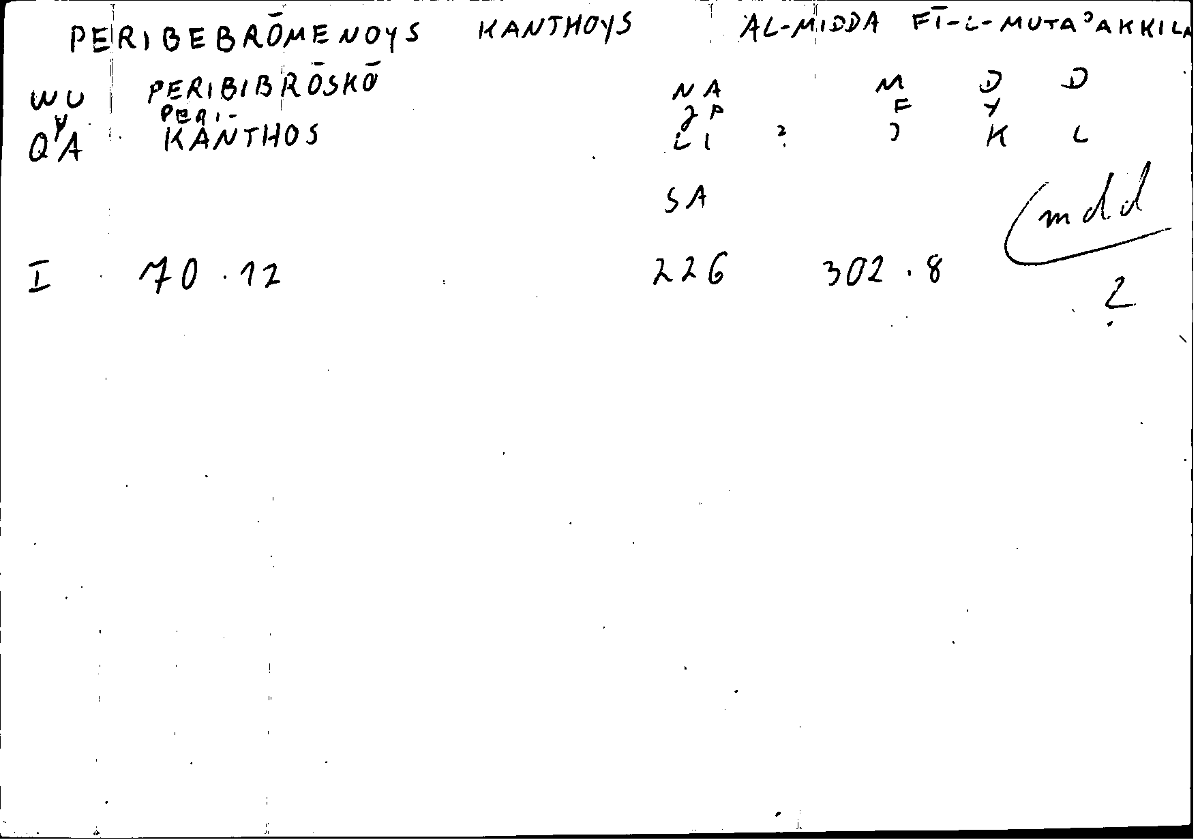 PERIBEBRŌMENOYS KANTHOYS AL-MIDDA FĪ-L-MUTAʾAKKILA
WU PERIBIBRŌSKŌ NA M D D
PERI- P F Y
QA KANTHOS LI ? ʾ K L
SA
mdd
I 70.12 226 302.8
?